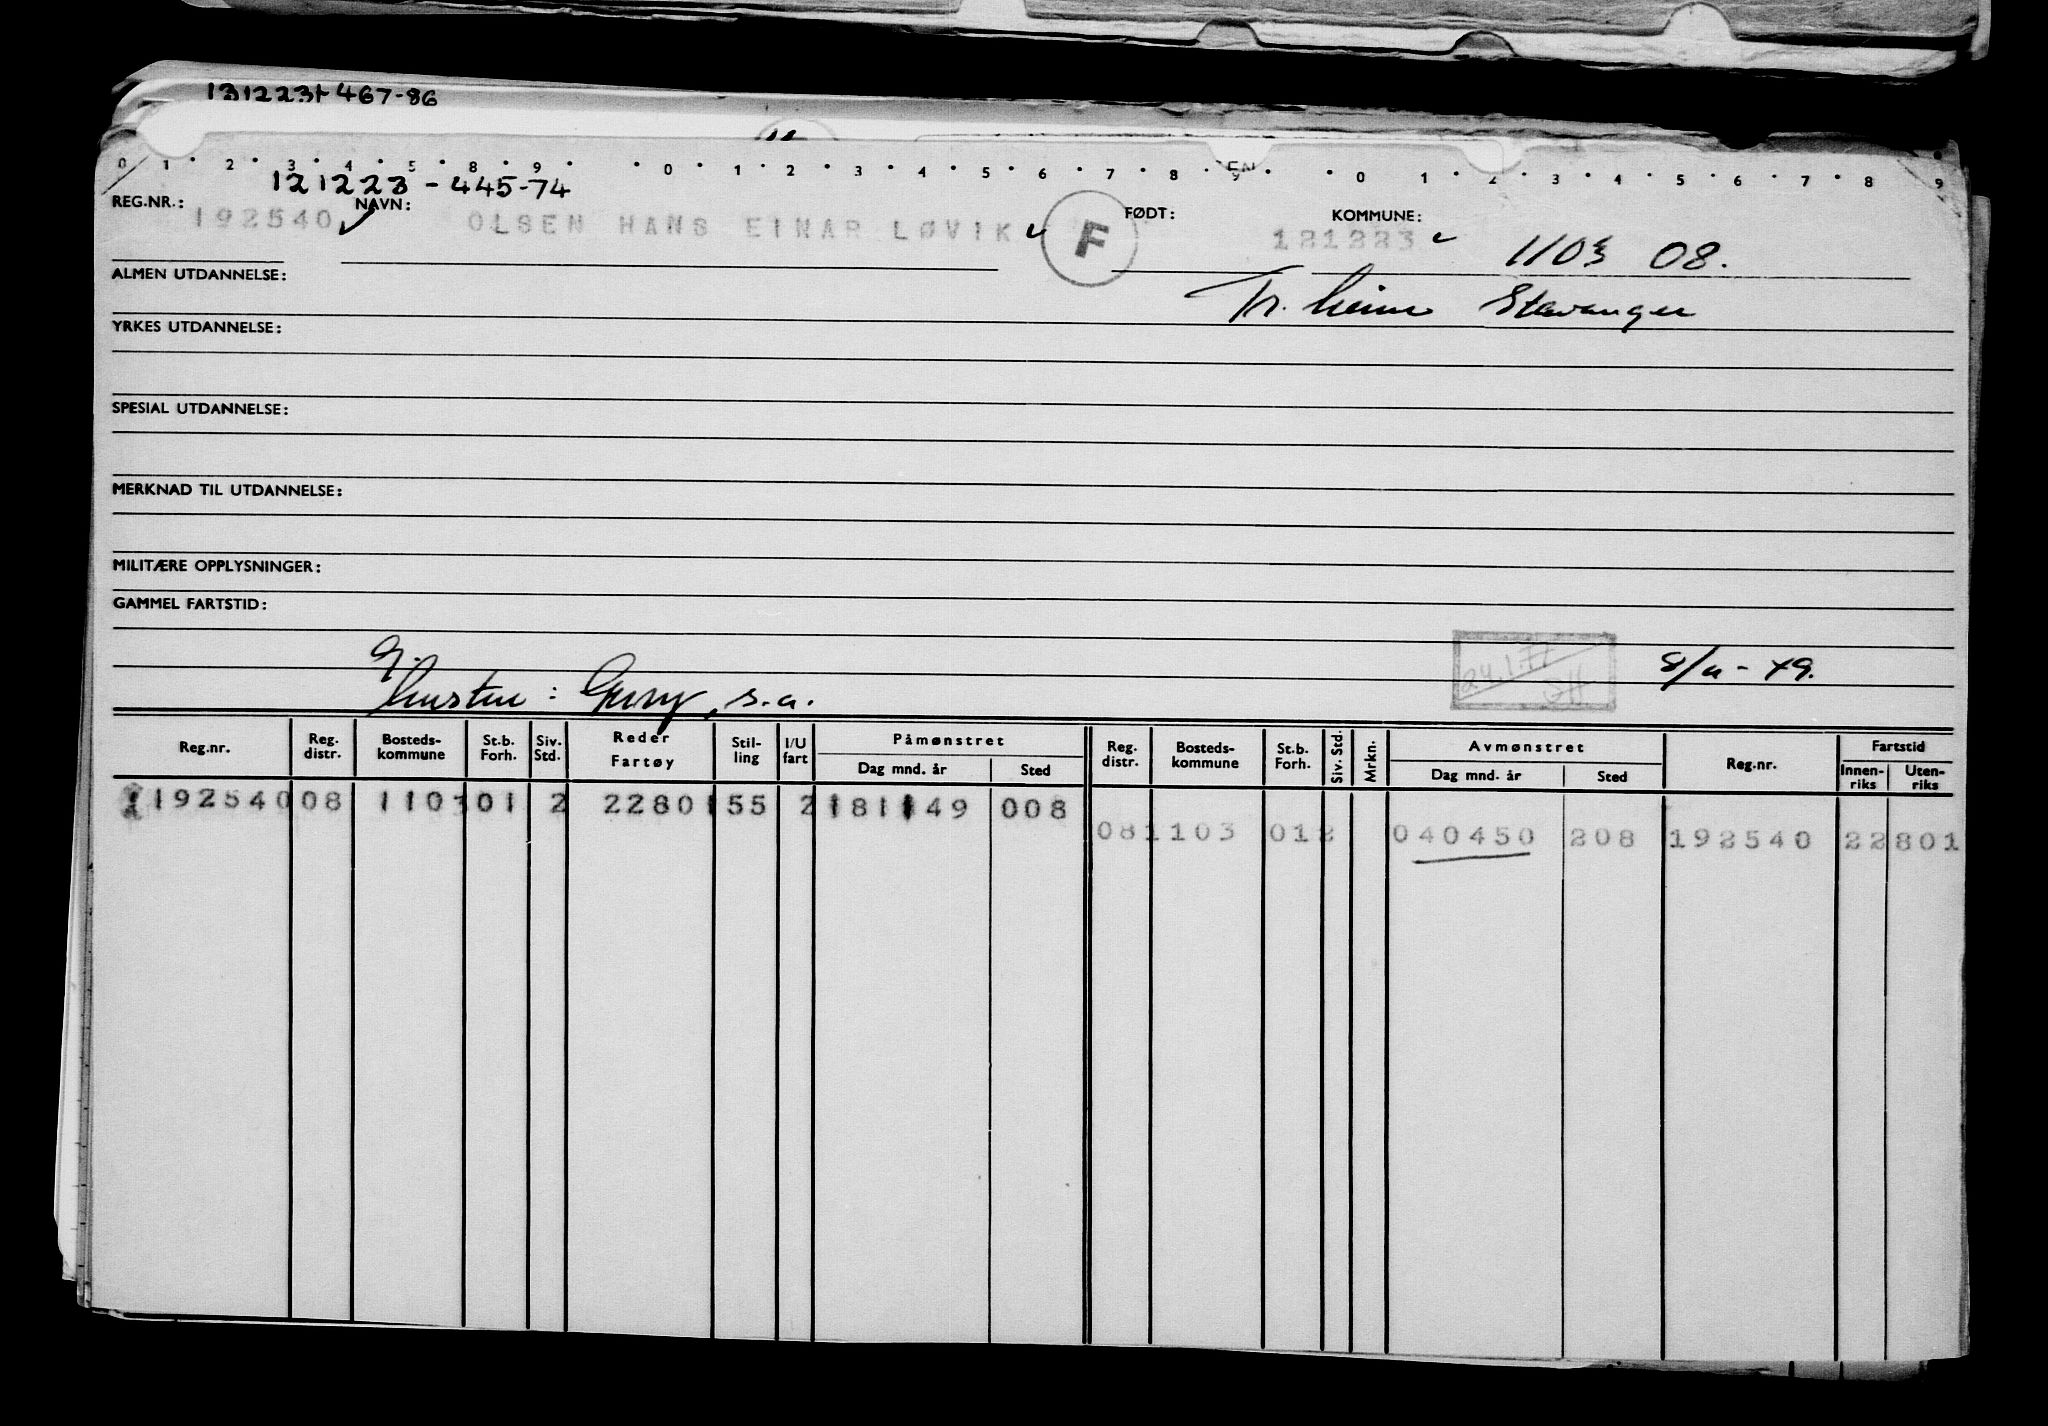 131223+467-86
0 1 2 3 4 5 8 9 0 1 2 3 4 5 6 7 8 9 0 1 2 3 4 5 6 7 8 9
121223-445-74
REG.NR.: NAVN: FØDT: KOMMUNE:
192540 OLSEN HANS EINAR LØVIK F 121223 1103 08.
ALMEN UTDANNELSE:
Tr.heim Stavanger
YRKES UTDANNELSE:
SPESIAL UTDANNELSE:
MERKNAD TIL UTDANNELSE:
MILITÆRE OPPLYSNINGER:
GAMMEL FARTSTID:
24.1.77 8/11-49.
s.a.
Reg.nr. Reg. distr. Bosteds-kommune St.b. Forh. Siv. Std. Reder Fartøy Stil-ling I/U fart Påmønstret Dag mnd. år Sted Reg. distr. Bosteds-kommune St.b. Forh. Siv. Std. Mrkn. Avmønstret Dag mnd. år Sted Reg.nr. Fartstid Innen-riks Uten-riks
192540 08 1103 01 2 22801 55 2 181149 008
08 1103 01 2 040450 208 192540 22801